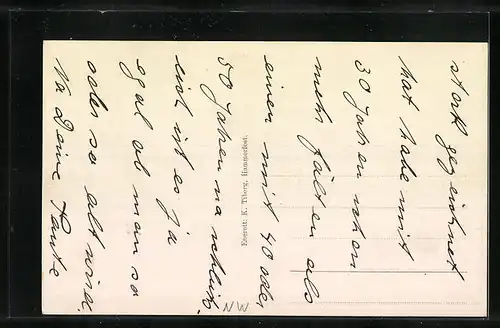 stark gezeichnet
hat habe mit
30 Jahren schon
mehr Falten als
einen mit 40 oder
50 Jahren na schließ-
lich ist es ja
egal ob man so
oder so alt wird.
Na Deine Tante
Eneret: K. Tiberg, Hammerfest.
NW